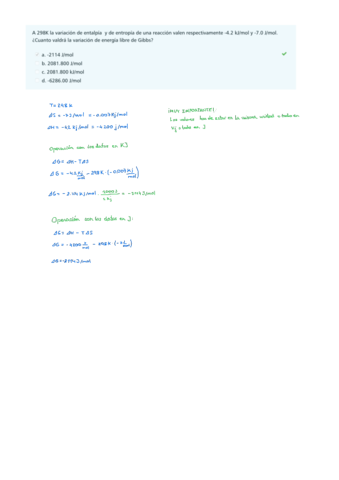 A 298K la variación de entalpía y de entropia de una reacción valen respectivamente -4.2 kJ/mol y -7.0 J/mol.
¿Cuanto valdrá la variación de energía libre de Gibbs?
a. -2114 J/mol
b. 2081.800 J/mol
c. 2081.800 kJ/mol
d. -6286.00 J/mol
T= 298 K
ΔS = -7 J/mol = -0.007 Kj/mol
ΔH = -4.2 Kj/mol = -4200 j/mol
Los valores han de estar en la misma unidad o todo en
Kj o todo en J
Operación con los datos en KJ
ΔG = ΔH - T ΔS
ΔG = -4.2 Kj/mol - 298 K · (-0.007 Kj/mol)
ΔG = - 2.114 KJ/mol · 1000 J / 1 Kj = - 2114 J/mol
Operación con los datos en J:
ΔG = ΔH - T ΔS
ΔG = -4200 J/mol - 298 K (-7 J/mol)
ΔG = -2114 J/mol